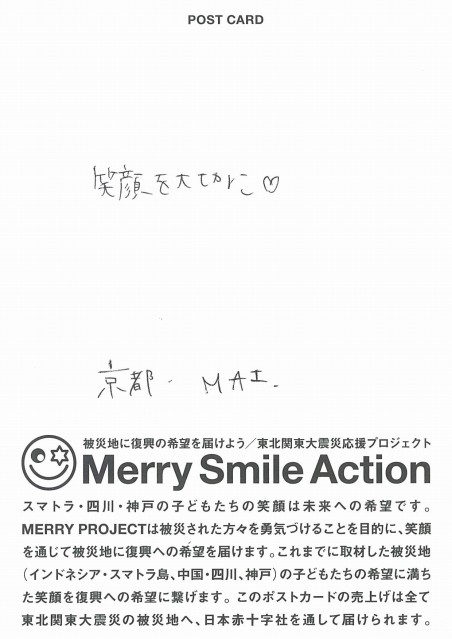 POST CARD
笑顔を大せつに♡
京都. MAI.
被災地に復興の希望を届けよう／東北関東大震災応援プロジェクト
Merry Smile Action
スマトラ・四川・神戸の子どもたちの笑顔は未来への希望です。
MERRY PROJECTは被災された方々を勇気づけることを目的に、笑顔
を通じて被災地に復興への希望を届けます。これまでに取材した被災地
（インドネシア・スマトラ島、中国・四川、神戸）の子どもたちの希望に満ち
た笑顔を復興への希望に繋げます。このポストカードの売上げは全て
東北関東大震災の被災地へ、日本赤十字社を通して届けられます。